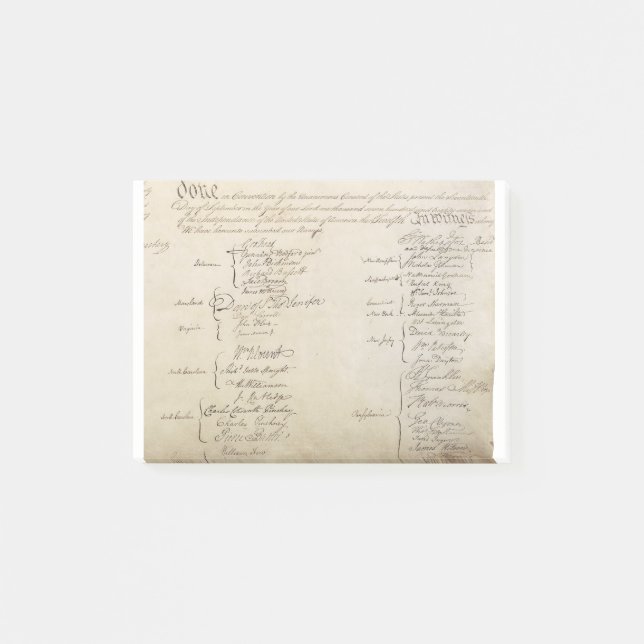 done in Convention by the Unanimous Consent of the States present the Seventeenth
Day of September in the Year of our Lord one thousand seven hundred and
of the Independance of the United States of America the Twelfth In Witness
We have hereunto subscribed our Names,
Delaware
Geo: Read
Gunning Bedford jun
John Dickinson
Richard Bassett
Jaco: Broom
Maryland
James McHenry
Dan of St Thos Jenifer
Danl Carroll
Virginia
John Blair
North Carolina
Wm Blount
Richd Dobbs Spaight
Hu Williamson
South Carolina
J. Rutledge
Charles Cotesworth Pinckney
Charles Pinckney
Pierce Butler
William Few
Go Washington Presidt
and deputy from Virginia
New Hampshire
John Langdon
Nicholas Gilman
Massachusetts
Nathaniel Gorham
Rufus King
Connecticut
Wm Saml Johnson
Roger Sherman
New York
Alexander Hamilton
New Jersey
Wil: Livingston
David Brearley
Wm Paterson
Jona: Dayton
Pensylvania
B Franklin
Thomas Mifflin
Robt Morris
Geo. Clymer
Thos FitzSimons
Jared Ingersoll
James Wilson